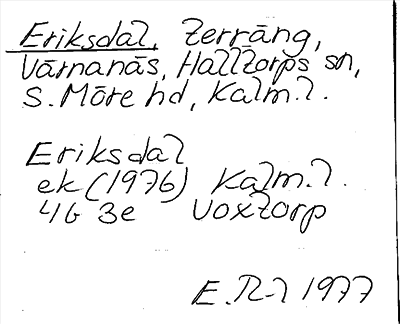 Eriksdal, Terräng,
Värnanäs, Halltorps sn,
S. Möre hd, Kalm. l.
Eriksdal
ek (1976) Kalm. l.
4G 3e Voxtorp
E. R-l 1977